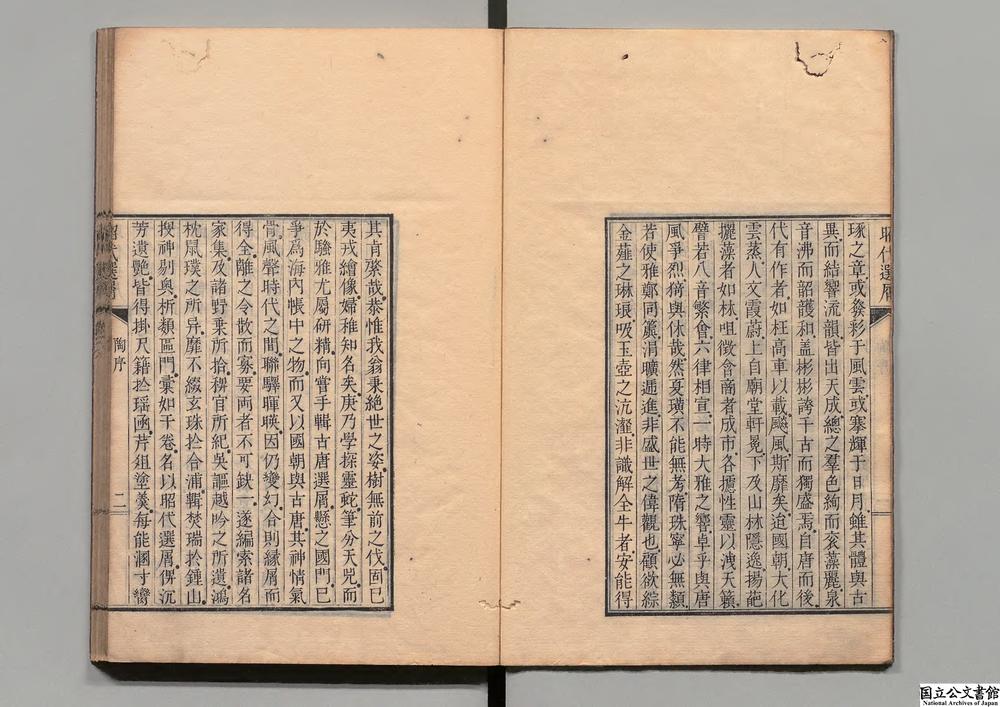 昭代選屑
琢之章或發彩于風雲或搴輝于日月雖其體與古
異而結響流韻皆出天成總之羣色絢而衮藻麗泉
音沸而韶護和盖彬彬誇千古而獨盛焉自唐而後
代有作者如枉高車以載飈風斯靡矣迨國朝大化
雲蒸人文霞蔚上自廟堂軒冕下及山林隱逸揚葩
擺藻者如林咀徵含商者成市各攄性靈以洩天籟
譬若八音繁會六律相宣一時大雅之響卓乎與唐
風爭烈猗與休哉然夏璜不能無考隋珠寧必無纇
若使雅鄭同薦涓曠逓進非盛世之偉觀也顧欲綜
金薤之琳琅吸玉壺之沆瀣非識解全牛者安能得
其肯綮哉恭惟我翁秉絶世之姿樹無前之伐固已
夷戎繪像婦稚知名矣庚乃學探靈蛇筆分天兕而
於騷雅尤屬研精向嘗手輯古唐選屑懸之國門已
爭爲海內帳中之物而又以國朝與古唐其神情氣
骨風聲時代之間聯驛暉暎因仍變幻合則縁屑而
得全離之令散而寡要兩者不可缺一遂編索諸名
家集及諸野乗所拾稗官所紀吳謳越吟之所遺鴻
枕鼠璞之所异靡不綴玄珠於合浦輯焚瑞於鍾山
搜神剔奥析類區門彙如干卷名以昭代選屑俾沉
芳遺艷皆得掛尺籍於瑶凾芹俎塗羹每能涸寸臠
昭代選屑
陶序
二
国立公文書館
National Archives of Japan